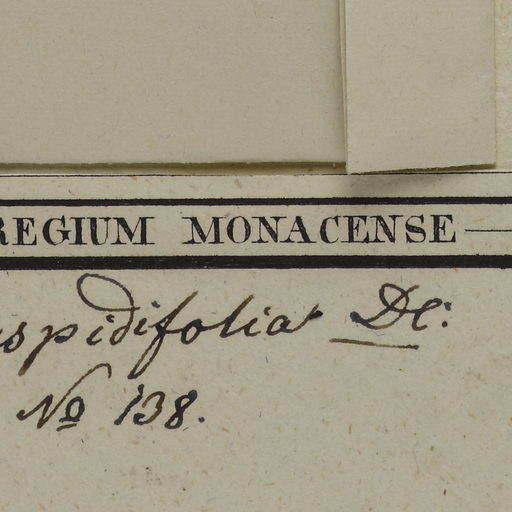 REGIUM MONACENSE
spidifolia DC:
No 138.